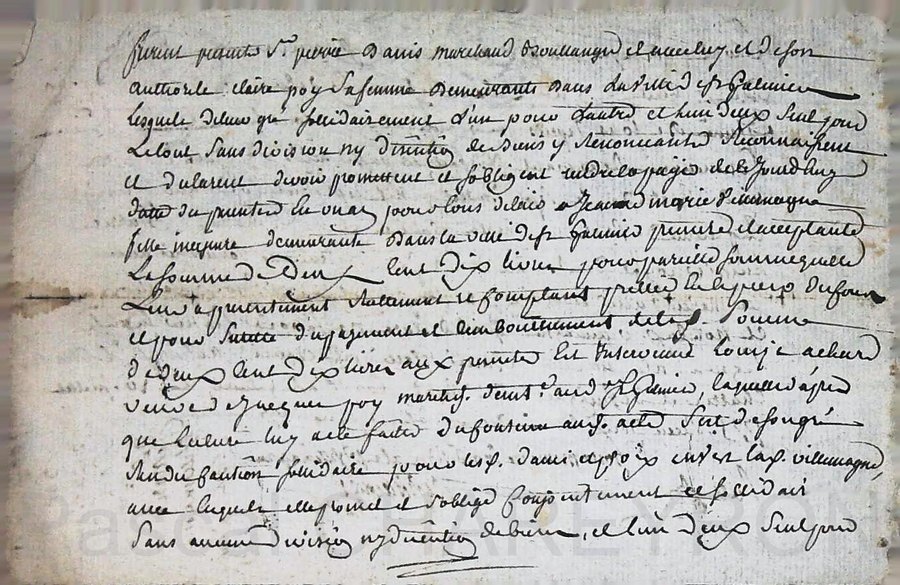 furent presents Sr. pierre Danis marchand Boullanger et avec luy et de son
authorité claire poy sa femme demeurants dans la ville de st Galmier
lesquels de leur gré solidairement l'un pour l'autre et l'un deux seul pour
le tout sans division ny de biens y renonceants reconnaissent
et declarent devoir promettent et sobligent payer de ce jourdhuy
datte des presentes en un an pour tous delais a Jeanne marie Villemagne
fille majeure demeurante dans la ville de st Galmier presente et acceptante
la somme de Deux Cent Dix livres pour pareille somme quelle
Leur a presentement reellement et comptant
et pour Sureté du payement et Remboursement de lad. Somme
de Deux Cent Dix livres aux presentes Est Intervenue
veuve de Jacques poy march. dem.t aud. st Galmier, laquelle apres
que lecture luy a eté faitte du contenu aud. acte Sest de son gré
rendue caution solidaire pour lesd. Danis et poix envers lad. villemagne,
avec lesquels elle promet et soblige Conjointement et solidair
Sans aucune division ny de biens, et l'un deux seul pour
PASCAL CHAREYRON